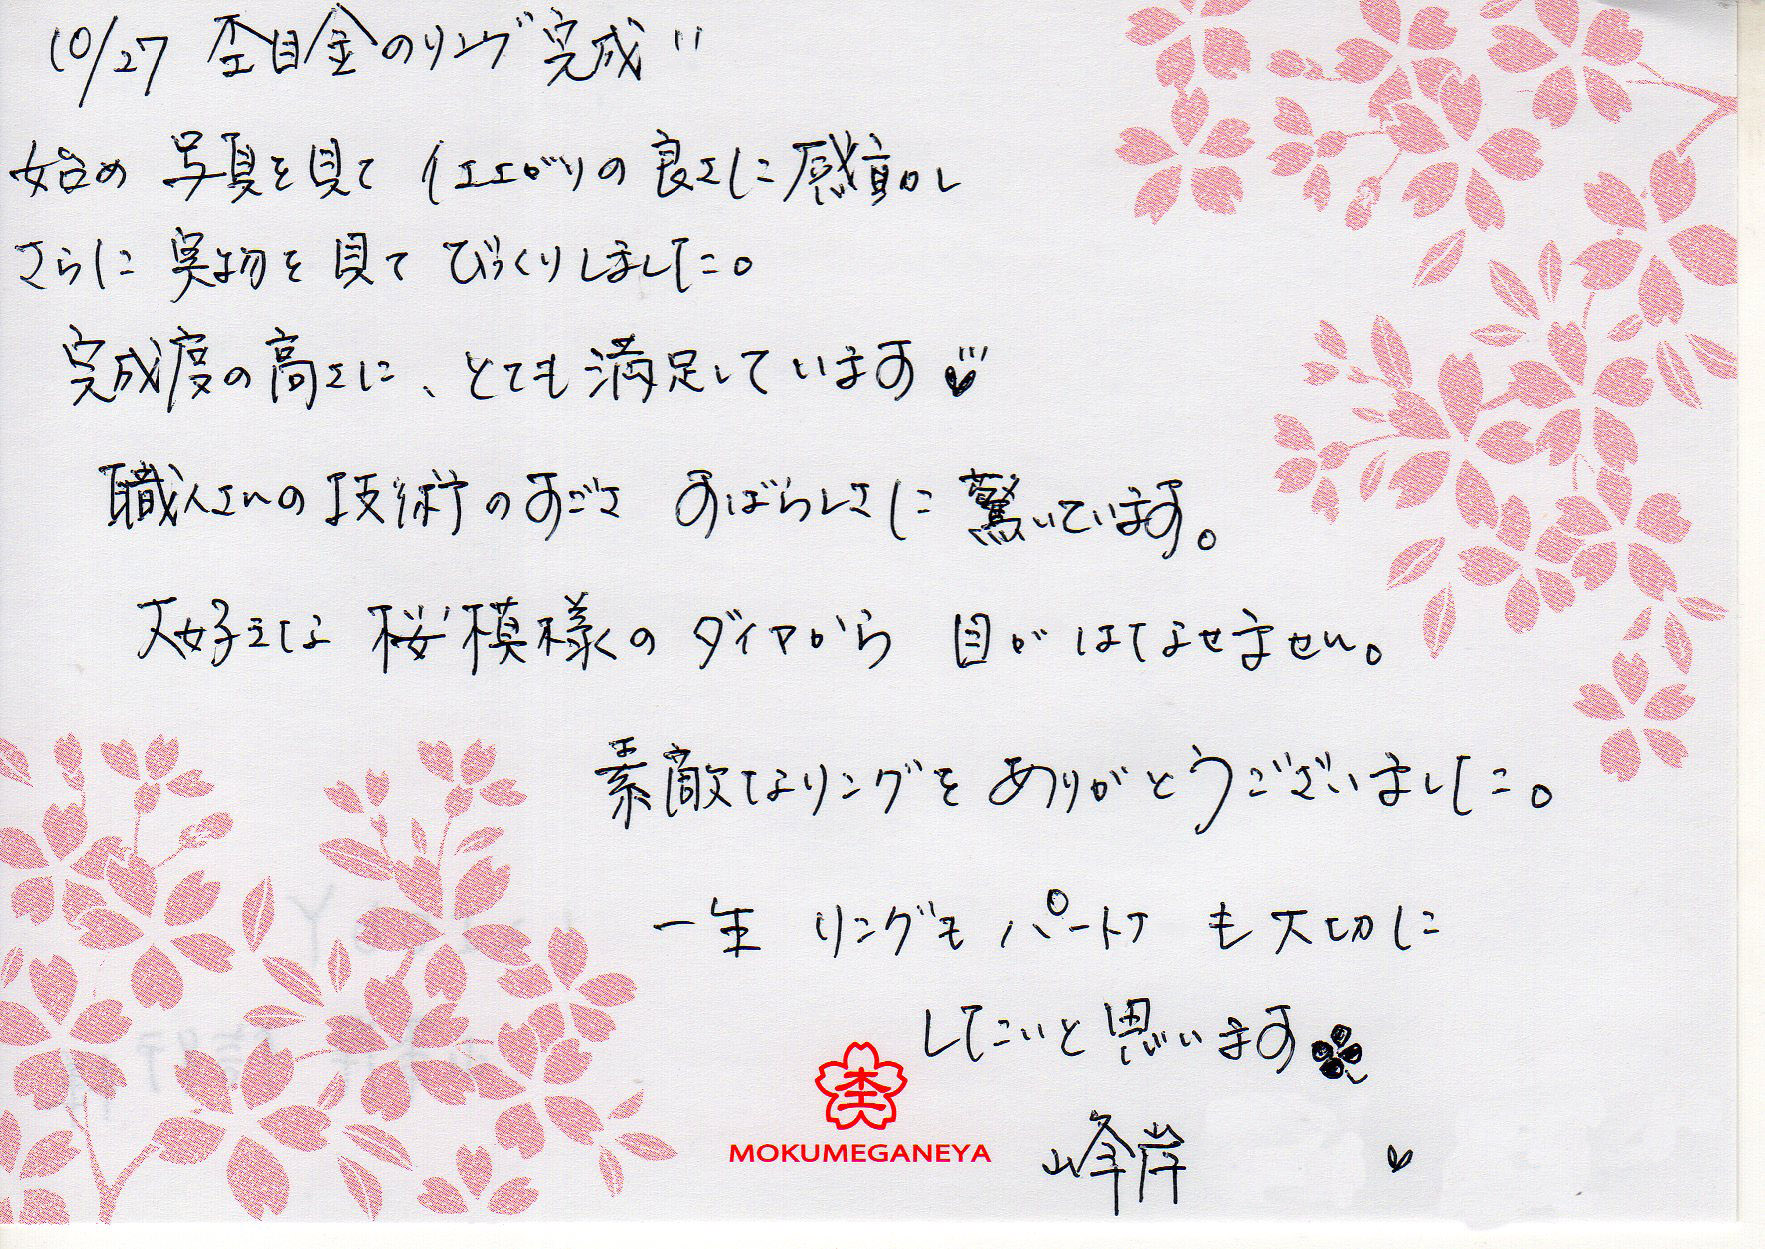 10/27 杢目金のリング完成!!
始め 写真を見て 仕上がりの良さに感動し
さらに実物を見て びっくりしました。
完成度の高さに、とても満足しています
職人さんの技術のすごさ すばらしさに驚いています。
大好きな桜模様のダイヤから 目がはなせません。
素敵なリングをありがとうございました。
一生 リングもパートナーも大切に
したいと思います
杢
MOKUMEGANEYA
峰岸